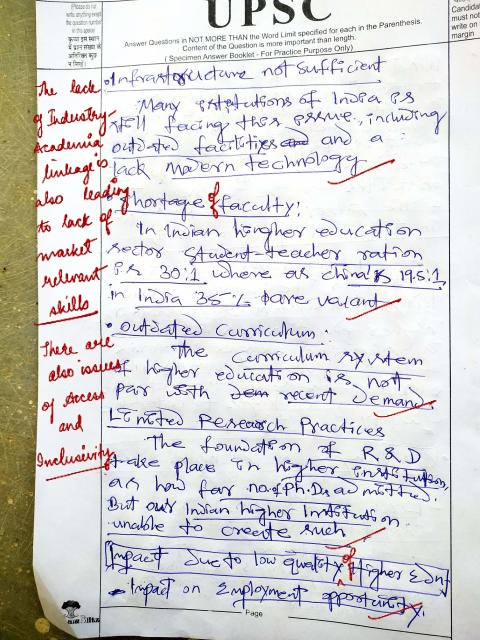 UPSC
(Please do not write anything except the question number in this space
कृपया इस स्थान में प्रश्न संख्या के अतिरिक्त कुछ न लिखें)
Answer Questions in NOT MORE THAN the Word Limit specified for each in the Parenthesis.
Content of the Question is more important than length.
( Specimen Answer Booklet - For Practice Purpose Only)
Candida
must not
write on
margin
The lack
of Industry-
Academia
linkage is
also leading
to lack of
market
relevant
skills
There are
also issues
of Access
and
Inclusivity.
• Infrastructure not sufficient
Many institutions of India is
still facing this issue, including
outdated facilities and a
lack modern technology
Shortage of faculty:
In Indian higher education
sector student-teacher ration
is 30:1 where as china is 19.5:1,
in India 35% are vacant
• outdated Curriculum:
The Curriculum system
of higher education is not
par with recent demand
Limited Research Practices
The foundation of R&D
take place in higher institution,
as how far no. of Ph.Ds admitted.
But our Indian higher Institution
unable to create such
Impact due to low quality of Higher Edn
- Impact on Employment opportunity.
Page